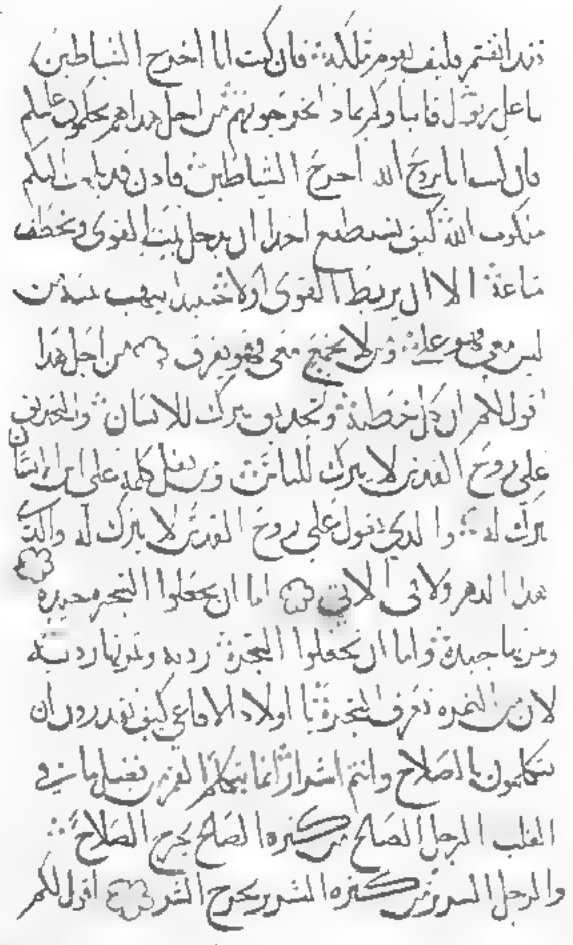 فقد انقسم فكيف تقوم مملكته فان كنت انا اخرج الشياطين
باعل زبول فابناوكم بماذا يخرجونهم من اجل هذا هم يحكمون عليكم
فان كنت انا بروح الله اخرج الشياطين فاذن قد بلغت اليكم
ملكوت الله كيف يستطيع احد ان يدخل بيت القوى ويخطف
متاعه الا ان يربط القوى اولا حينيذ ينهب بيته من
ليس معى فهو على ومن لا يجمع معى فهو يفرق من اجل هذا
اقول لكم ان كل خطية وتجديف يترك للانسان والتجديف
على روح القدس لا يترك للناس ومن يقل كلمة على ابن انسان
يترك له والذى يقول على روح القدس لا يترك له
هذا الدهر ولا فى الاتى اما ان يجعلوا الشجره جيده
وثمرتها جيدة واما ان يجعلوا الشجرة رديه وثمرتها رديه
لان من الثمره تعرف الشجرة يا اولاد الافاعى كيف تقدرون ان
تتكلمون بالصلاح وانتم اشرار انما يتكلم الفم من فضل ما فى
القلب الرجل الصالح من كنزه الصالح يخرج الصلاح
والرجل الشرير من كنزه الشرير يخرج الشر اقول لكم